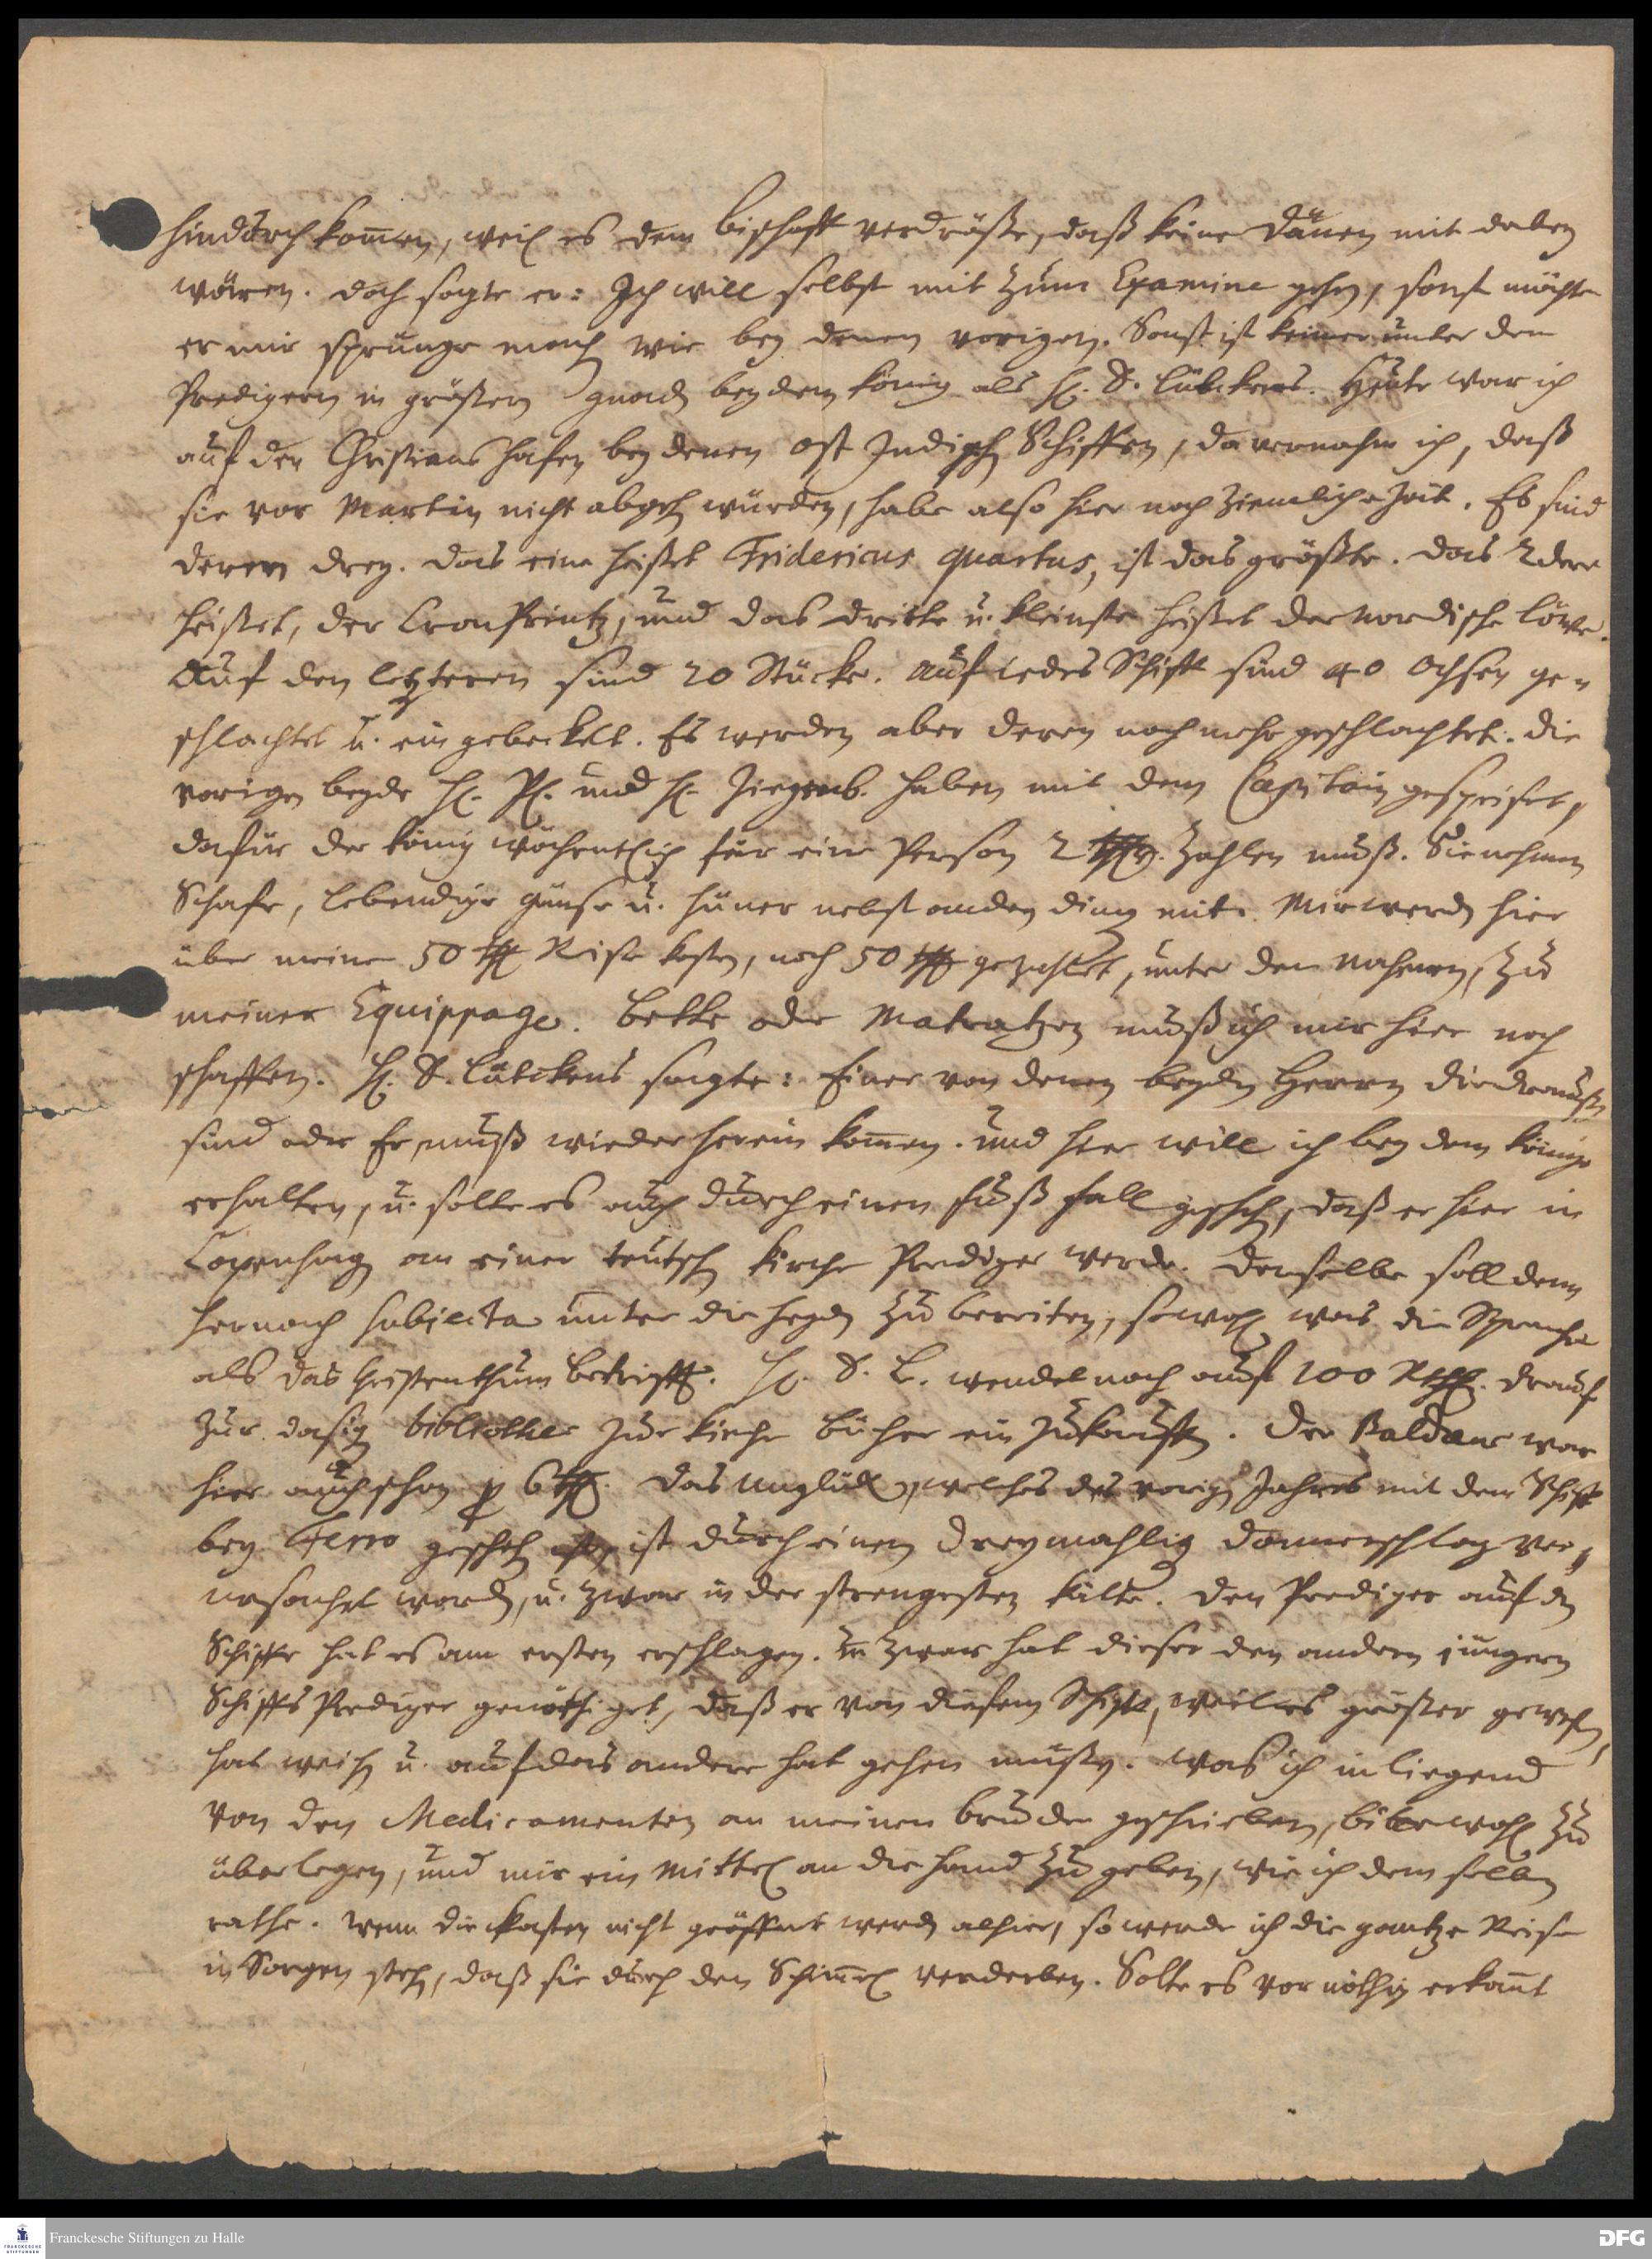 hindurch kom̄en, weil es dem Bischoff verdröße, daß keine Dänen mit dabey
wären. Doch sagte er: Ich will selbst mit zum Examine gehen, sonst möchte
er mir sprünge mach wie bey denen vorigen. Sonst ist keiner unter den
Predigern in größern gnad bey dem König als H. D. Lütkens. Heute war ich
auf den Christians hafen bey denen Ost Indisch Schiffen, da vernahm ich, daß
sie vor Martin nicht abgeh würden, habe also hier noch ziemliche Zeit. Es sind
deren drey. Das eine heißet Fridericus quartus, ist das größte. Das 2dere
heißet, der CronPrintz, und das dritte u. kleinste heißet der nordische Löwe.
Auf den letzteren sind 20 Stücke. Auf iedes Schiff sind 40 Ochsen ge-
schlachtet u. eingebeckelt. Es werden aber deren noch mehr geschlachtet. Die
vorigen beyde H. Pl. und H. Ziegenb. haben mit dem Capitain gespeiset,
dafür der König wöchentlich für eine Person 2 Thlr. zahlen muß. Sie nehmen
Schafe, lebendige Gänse u. Hüner nebst andern ding mit. Mir werd hier
über meine 50 Thl Reise kosten, noch 50 Thl gezahlet, unter den Nahmen, zu
meiner Equippage. Bette oder Matratzen muß ich mir hier noch
schaffen. H. D. Lütckens sagte: Einer von denen beyden Herrn die draußen
sind oder Er, muß wieder herein kom̄en. Und hier will ich bey dem Könige
erhalten, u. sollte es auch durch einen Fuß fall gescheh, daß er hier in
Copenhag an einer teutsch Kirche Prediger werde. Derselbe soll denn
hernach subjecta unter die Heyden zu bereiten, sowohl was die Sprache
als das Christenthum betrifft. H. D. L. wendet noch auf 100 Rthl. drauf
zur dasig bibliothec zur Kirche bücher ein zukauffen. Der Baldaeus war
hier auch schon p 6 Thl. Das Unglück, welches des vorig Jahres mit dem Schiff
bey Ferro gescheh ist, ist durch einen dreymahlig Donnerschlag ver-
ursachet word, u. zwar in der strengesten Kälte. Den Prediger auf dem
Schiffe hat es am ersten erschlagen. Und zwar hat dieser den andern jüngern
Schiffs Prediger genöthiget, daß er von diesem Schiff, weil es größer gewesen,
hat weichen u. auf das andere hat gehen müßen. Was ich inliegend
von den Medicamenten an meinen Bruder geschrieben, bitte wohl zu
überlegen, und mir ein Mittel an die Hand zu geben, wie ich dem selben
rathe. Wenn die Kasten nicht geöffnet werd alhier, so werde ich die gantze Reise
in Sorgen steh, daß sie durch den Schim̄el verderben. Solte es vor nöthig erkan̄t
Franckesche Stiftungen zu Halle
DFG